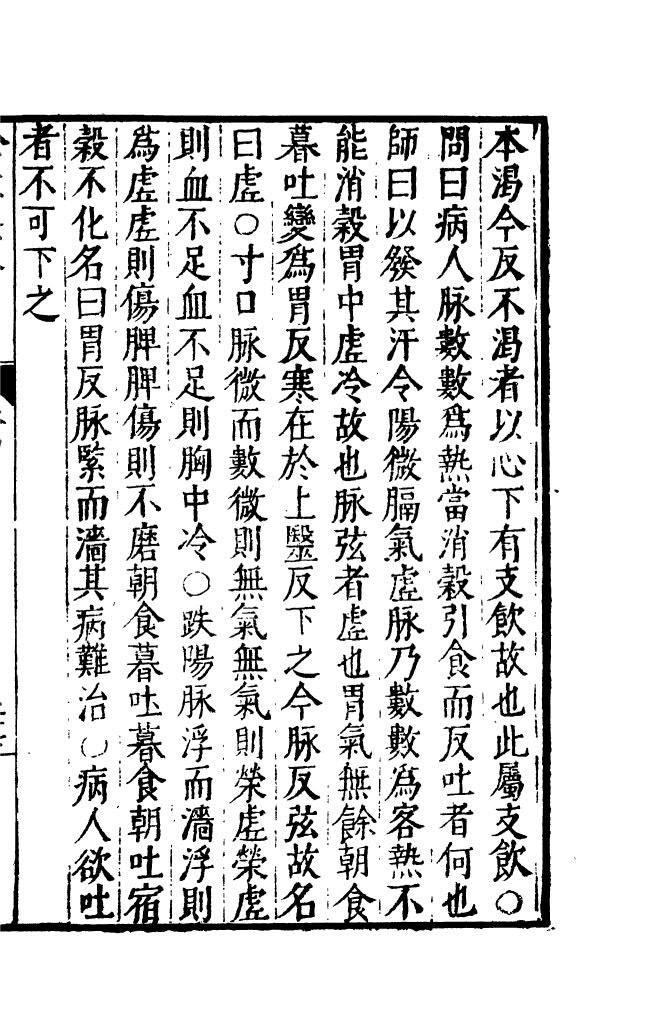 本渴今反不渴者以心下有支飲故也此屬支飲〇
問曰病人脉數數爲熱當消穀引食而反吐者何也
師曰以發其汗令陽微膈氣虛脉乃數數爲客熱不
能消穀胃中虛冷故也脉弦者虛也胃氣無餘朝食
暮吐變爲胃反寒在於上醫反下之今脉反弦故名
曰虛〇寸口脉微而數微則無氣無氣則榮虛榮虛
則血不足血不足則胸中冷〇趺陽脉浮而濇浮則
爲虛虛則傷脾脾傷則不磨朝食暮吐暮食朝吐宿
穀不化名曰胃反脉緊而濇其病難治〇病人欲吐
者不可下之